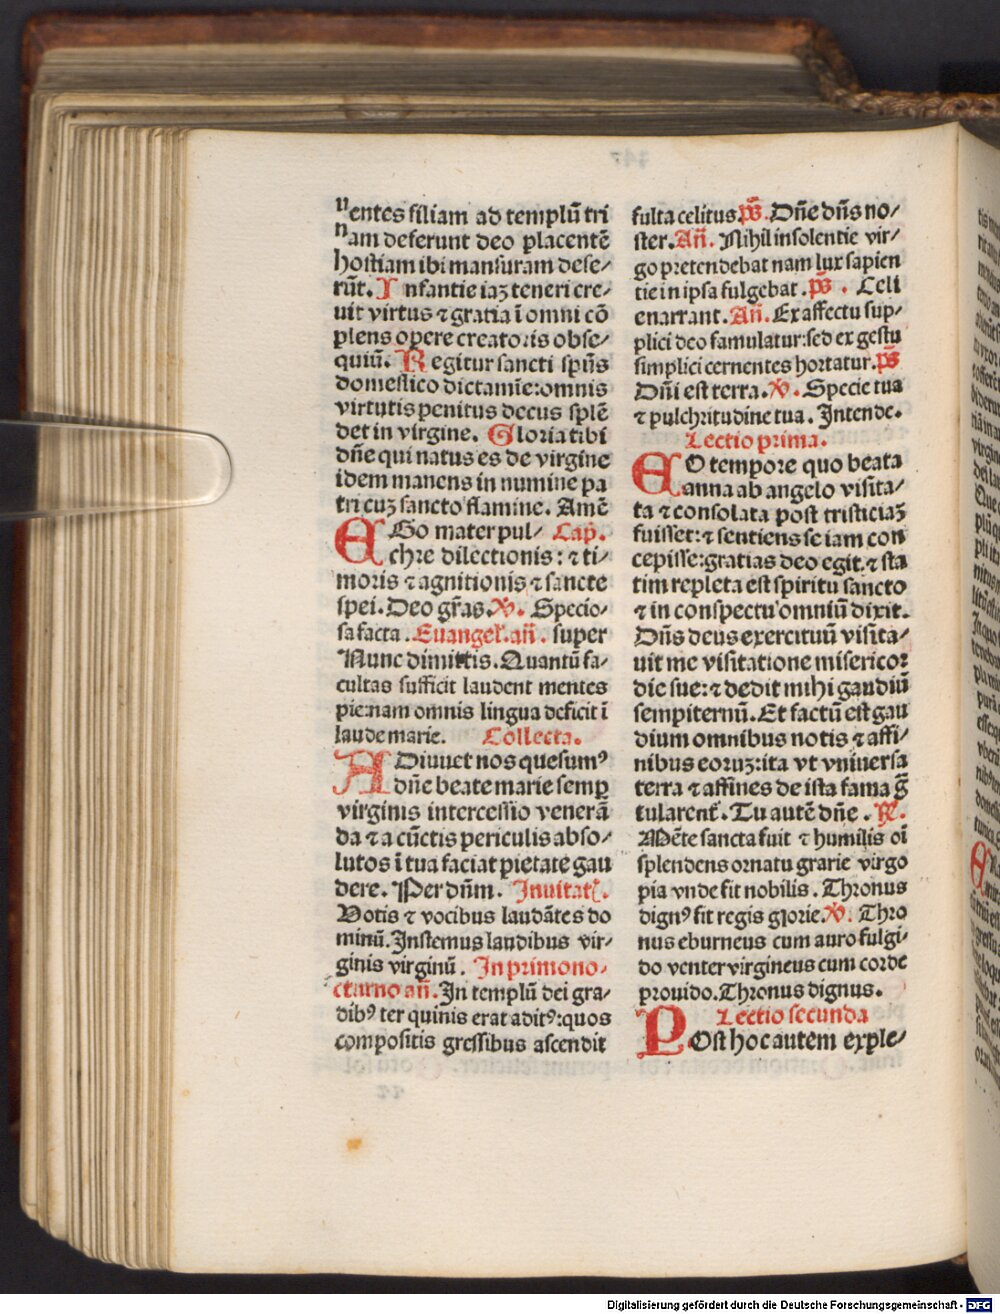 nentes filiam ad templū tri
nam deferunt deo placentē
hostiam ibi mansuram dese/
rūt. Infantie iaꝫ teneri cre/
uit virtus ⁊ gratia ī omni cō
plens opere creatoris obse/
quiū. Regitur sancti spūs
domestico dictamīe: omnis
virtutis penitus decus splē
det in virgine. Gloria tibi
dn̄e qui natus es de virgine
idem manens in numine pa
tri cuꝫ sancto flamine. Amē
EGo mater pul/ Cap̄.
chre dilectionis: ⁊ ti/
moris ⁊ agnitionis ⁊ sancte
spei. Deo gr̄as. ℣. Specio/
sa facta. Euangel̄. an̄. super
Nunc dimittis. Quantū fa/
cultas sufficit laudent mentes
pie: nam omnis lingua deficit ī
laude marie. Collecta.
ADiuuet nos quesumꝰ
dn̄e beate marie semꝑ
virginis intercessio venerā
da ⁊ a cūctis periculis abso/
lutos ī tua faciat pietate gau
dere. Per dn̄m. Inuitat̄.
Votis ⁊ vocibus laudātes do
minū. Instemus laudibus vir/
ginis virginū. In primo no/
cturno an̄. In templū dei gra/
dibꝰ ter quinis erat aditꝰ: quos
compositis gressibus ascendit
fulta celitus. ps̄. Dn̄e dn̄s no/
ster. An̄. Nihil insolentie vir/
go pretendebat nam lux sapien
tie in ipsa fulgebat. ps̄. Celi
enarrant. An̄. Ex affectu sup/
plici deo famulatur: sed ex gestu
simplici cernentes hortatur. ps̄
Dn̄i est terra. ℣. Specie tua
⁊ pulchritudine tua. Intende.
Lectio prima.
EO tempore quo beata
anna ab angelo visita/
ta ⁊ consolata post tristiciaꝫ
fuisset: ⁊ sentiens se iam con
cepisse: gratias deo egit. ⁊ sta
tim repleta est spiritu sancto
⁊ in conspectu omniū dixit.
Dn̄s deus exercituū visita/
uit me visitatione misericor
die sue: ⁊ dedit mihi gaudiū
sempiternū. Et factū est gau
dium omnibus notis ⁊ affi/
nibus eoruꝫ: ita vt vniuersa
terra ⁊ affines de ista fama ḡ
tularent̄. Tu autē dn̄e. ℟.
Mēte sancta fuit ⁊ humilis oī
splendens ornatu grarie virgo
pia vnde fit nobilis. Thronus
dignꝰ fit regis glorie. ℣. Thro
nus eburneus cum auro fulgi/
do venter virgineus cum corde
prouido. Thronus dignus.
Lectio secunda
POst hoc autem exple/
Digitalisierung gefördert durch die Deutsche Forschungsgemeinschaft - DFG